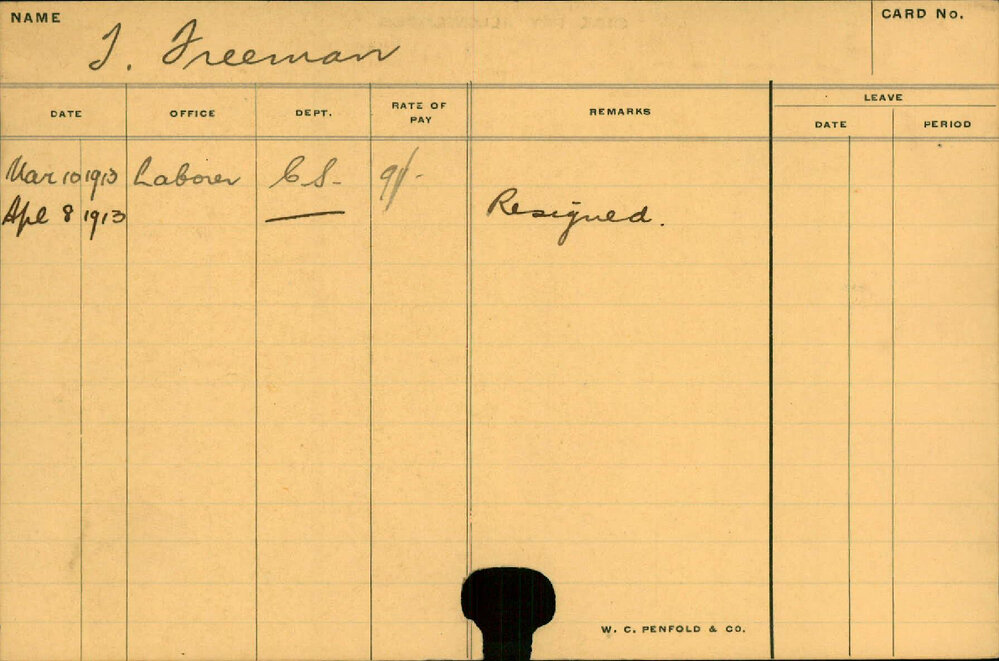 NAME
T. Freeman
CARD No.
DATE OFFICE DEPT. RATE OF PAY REMARKS LEAVE
DATE PERIOD
Mar 10 1913 Laborer C S - 9/-
Apl 8 1913 Resigned.
W. C. PENFOLD & CO.